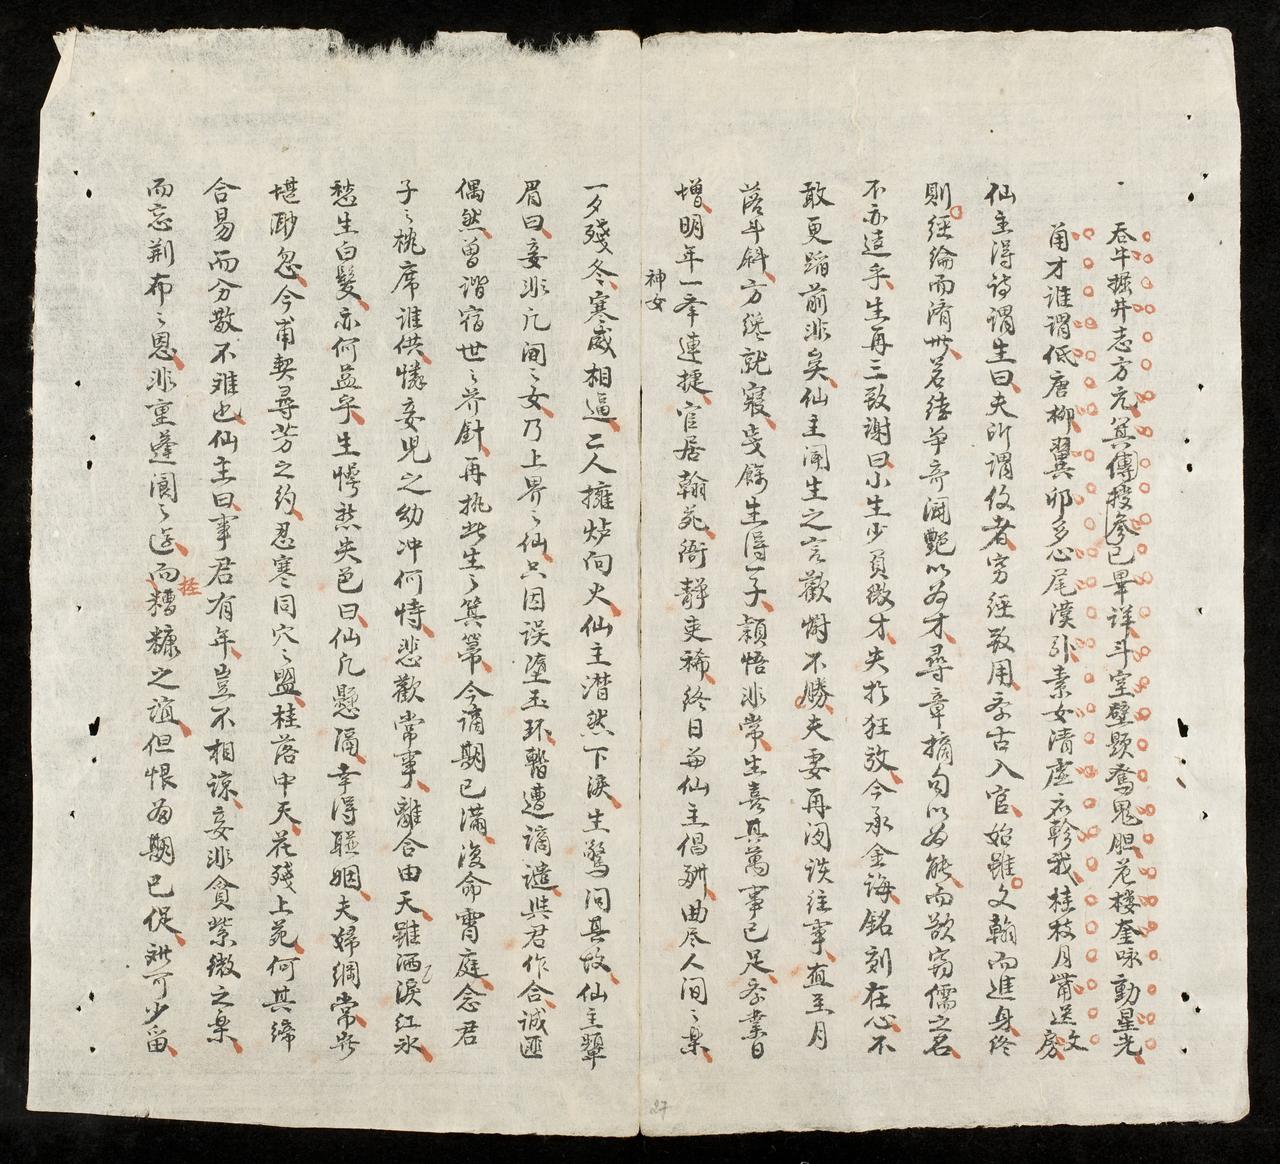 吞牛掘井志方元箕傳授參已早詳斗室壁題奮鬼胆危樓奎咏動星光
角才誰謂低唐柳翼卯多心尾漢張素女清虛衣軫我桂枝月帶送文房
仙主得詩謂生曰夫所謂佼者穷經致用学古入官始雖文翰而進身終
則經綸而濟卋若徒争奇闘艷以為才尋章摘句以為能而欲窃儒之名
不亦遠乎生再三致謝曰小生少負微才失於狂放今承金誨銘刻在心不
敢更蹈前非矣仙主闻生之言歡慰不勝夫妻再闵談往事直至月
落斗斜方纔就寢歲餘生得一子頴悟非常生喜其萬事已足学業日
增明年一举連捷官居翰苑衙靜吏稀終日與仙主倡酬曲尽人间之楽
神女
一夕殘冬寒威相逼二人擁炉向火仙主潸然下淚生驚问其故仙主顰
眉曰妾非凢间之女乃上界之仙只因误墮玉环暫遭谪譴與君作合誠匪
偶然曾谐宿世之芥針再执此生之箕箒今谪期已满復命霄庭念君
子之桃席誰供憐妾児之幼冲何恃悲歡常事離合由天雖洒淚红氷
愁生白髮亦何益乎生愕然失色曰仙凢懸隔幸得聯姻夫婦綱常岂
堪耹忽今甫契尋芳之约忍寒同穴之盟桂落中天花殘上苑何其締
合易而分散不难也仙主曰事君有年豈不相谅妾非貪紫微之楽
而忘荆布之恩非重蓬閬之遊而糟糠之誼但恨為期已促难可少畄
拴
27